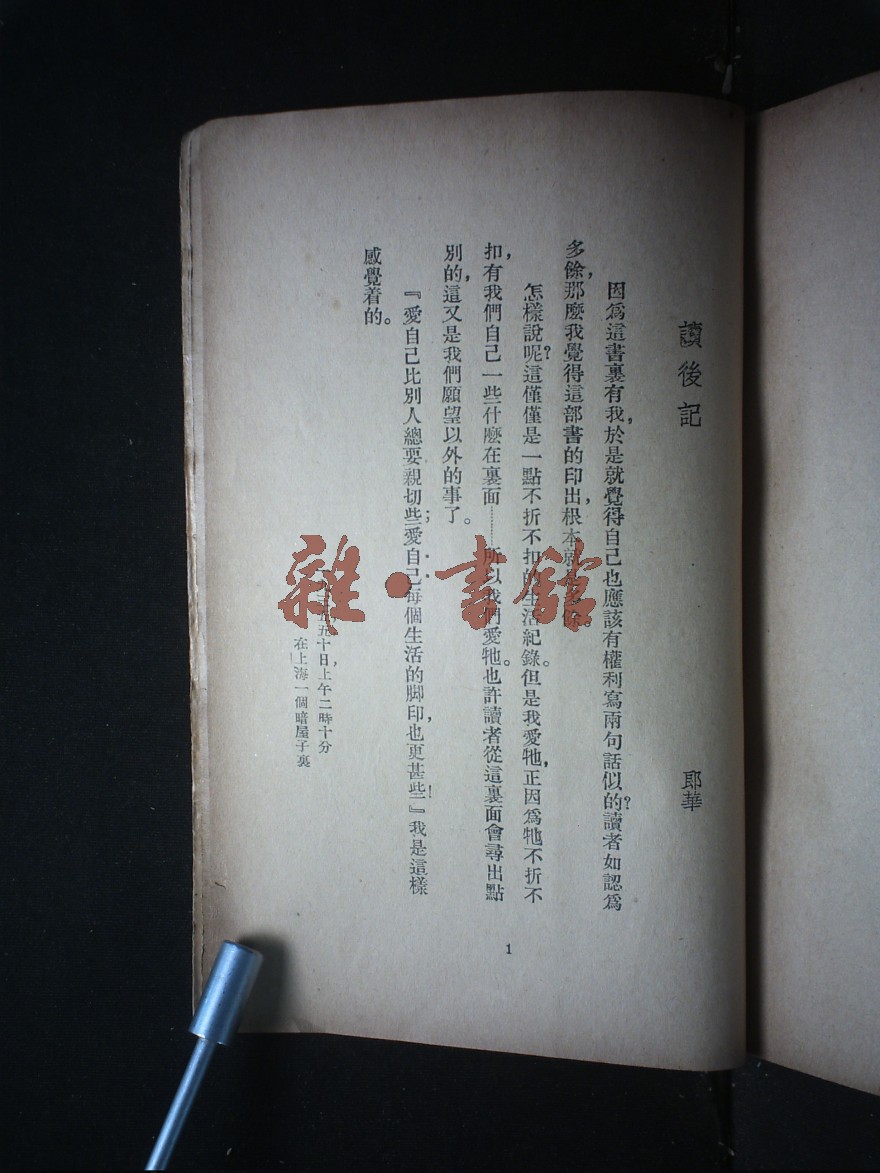 讀後記
郎華
因爲這書裏有我，於是就覺得自己也應該有權利寫兩句話似的？讀者如認爲
多餘，那麼我覺得這部書的印出，根本就是多餘。
怎樣說呢？這僅僅是一點不折不扣的生活紀錄。但是我愛牠，正因爲牠不折不
扣，有我們自己一些什麼在裏面………所以我們愛牠。也許讀者從這裏面會尋出點
別的，這又是我們願望以外的事了。
『愛自己比別人總要親切些；愛自己每個生活的脚印也更甚些！』我是這樣
感覺着的。
五十日上午二時十分，
在上海一個暗屋子裏
1
雜·書館